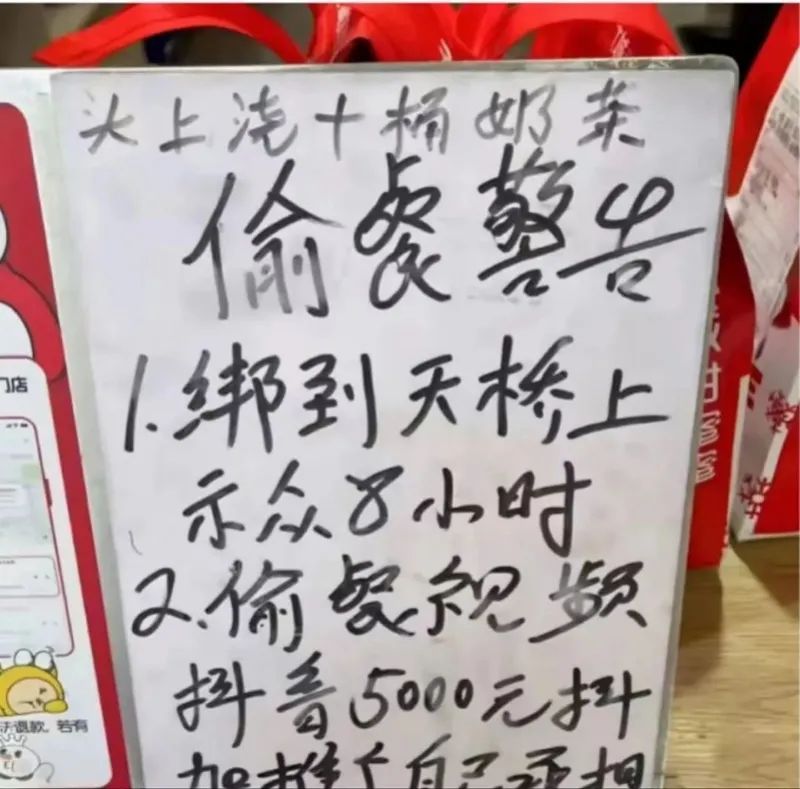 头上浇十桶奶茶
偷餐警告
1.绑到天桥上
示众8小时
2.偷餐视频
抖音5000元抖
加推广自己
门店
退款,若有